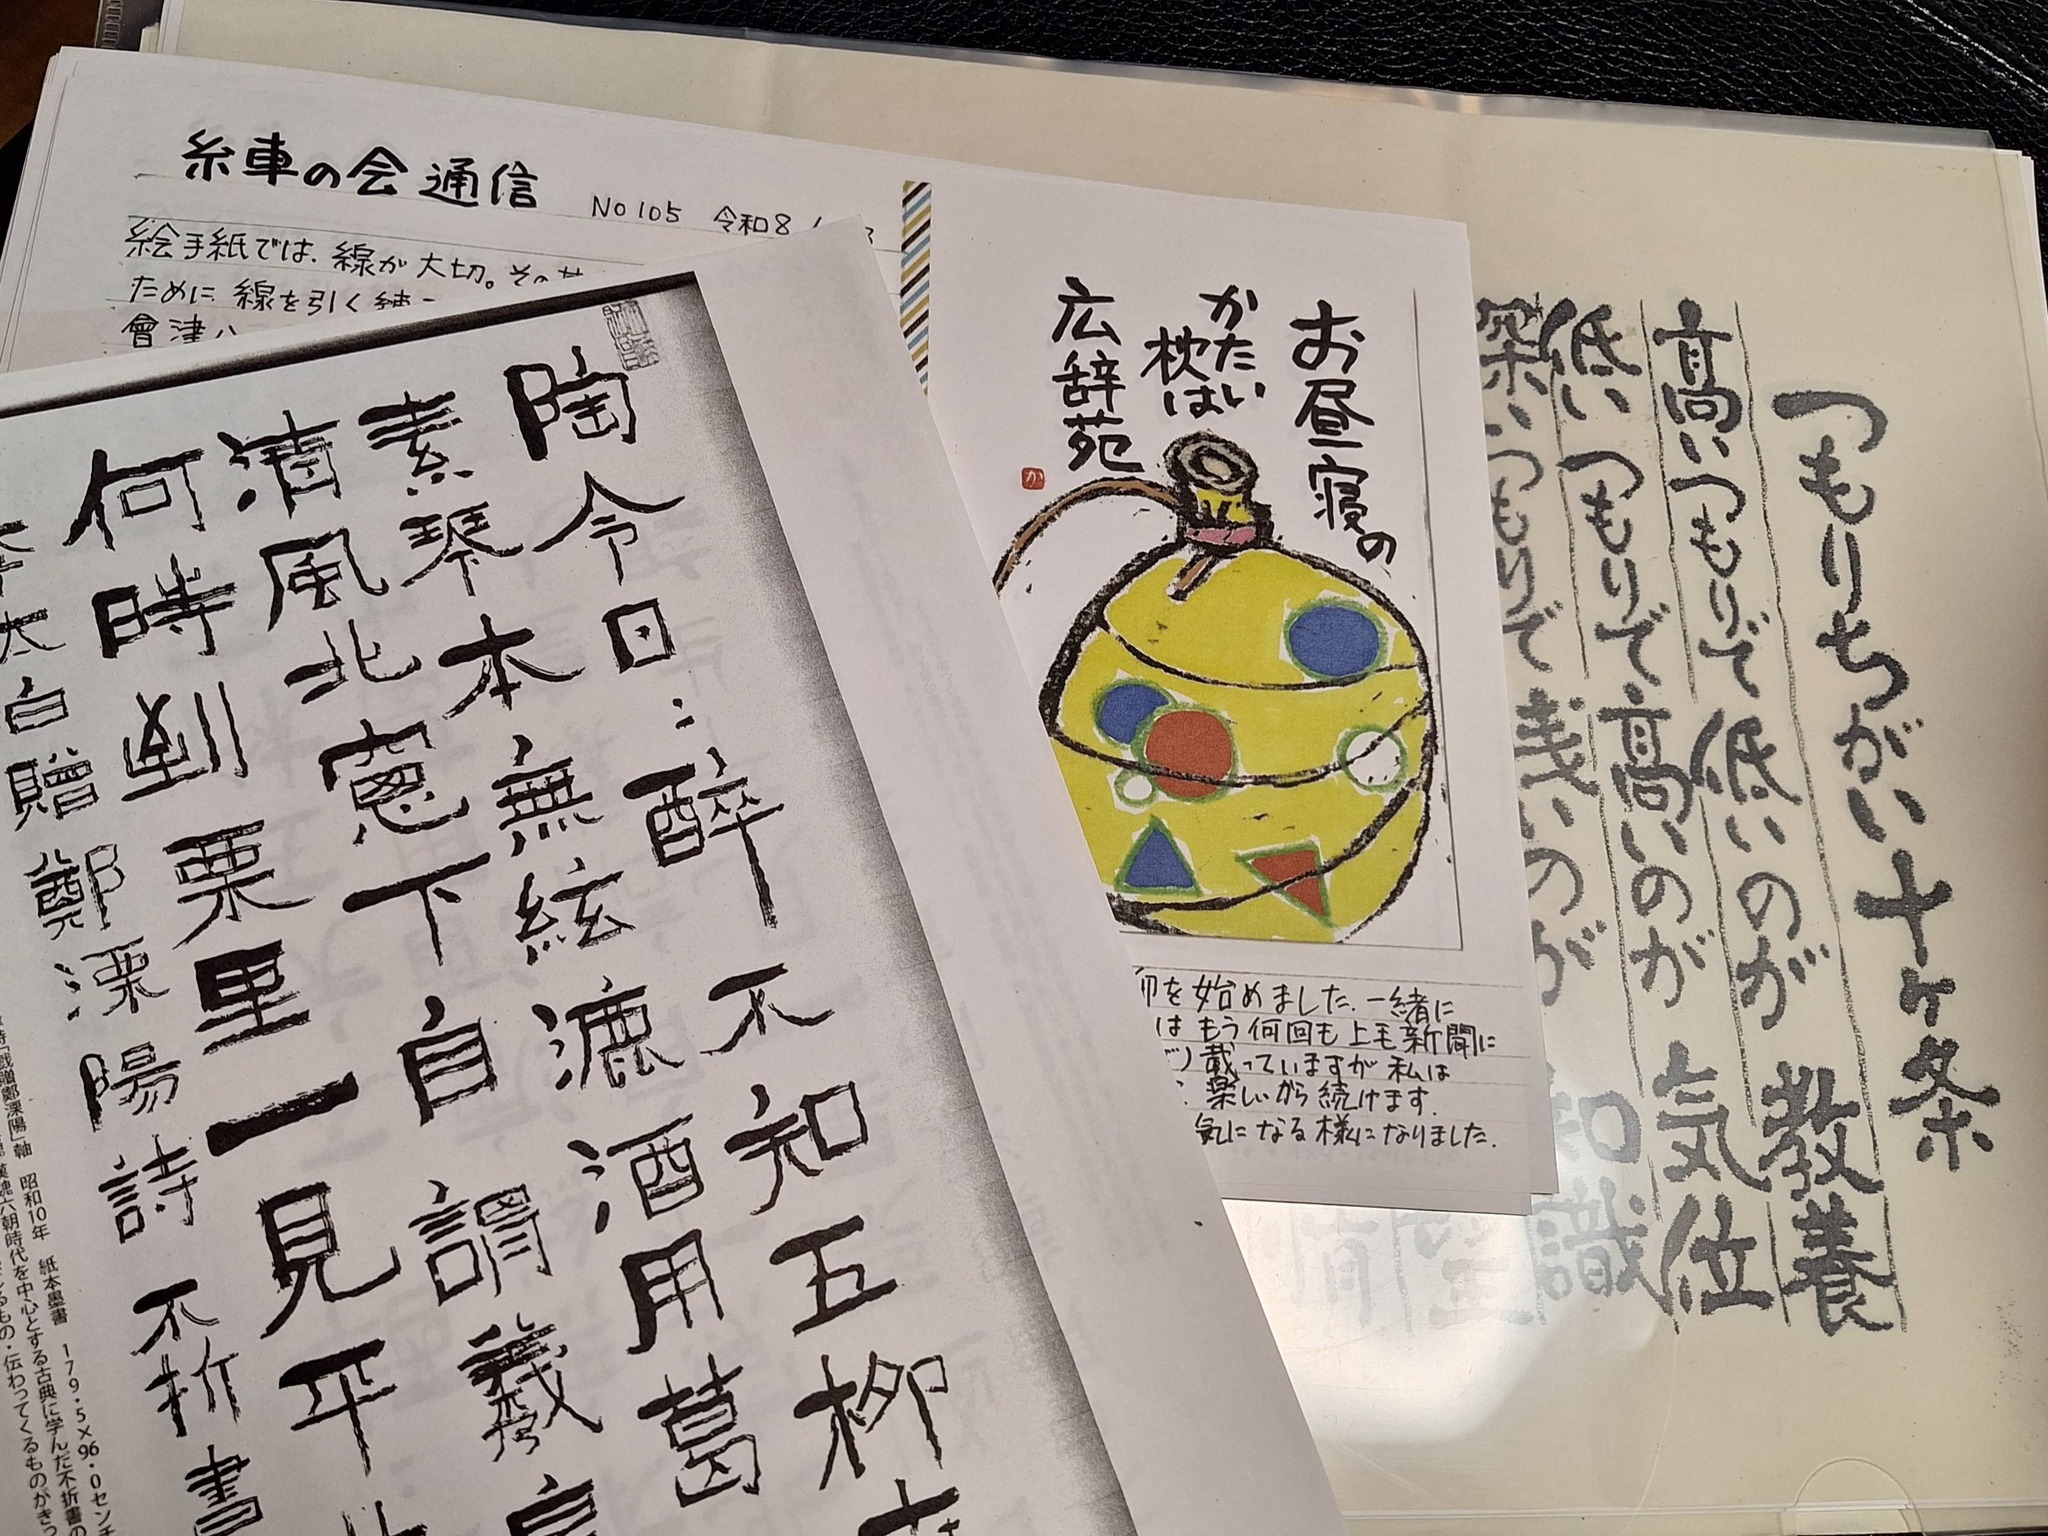 糸車の会 通信
No 105 令和8
絵手紙では、線が大切。その
ために 線を引く
會津八
お昼寝の
かたい
枕は
広辞苑
か
を始めました。一緒に
はもう何回も上毛新聞に
載っていますが 私は
楽しいから続けます。
気になる様になりました。
つもりちがい十ヶ条
高いつもりで低いのが 教養
低いつもりで高いのが 気位
深いつもりで浅いのが 知識
陶令日:醉不知五柳
素琴本無絃漉酒用葛
清風北窻下自謂羲皇
何時到栗里一見平
李太白贈鄭溧陽詩 不折書
詩「戯贈鄭溧陽」軸 昭和10年 紙本墨書 179.5×96.0センチ
漢魏六朝時代を中心とする古典に学んだ不折書の
もの・伝わってくるものがきっ